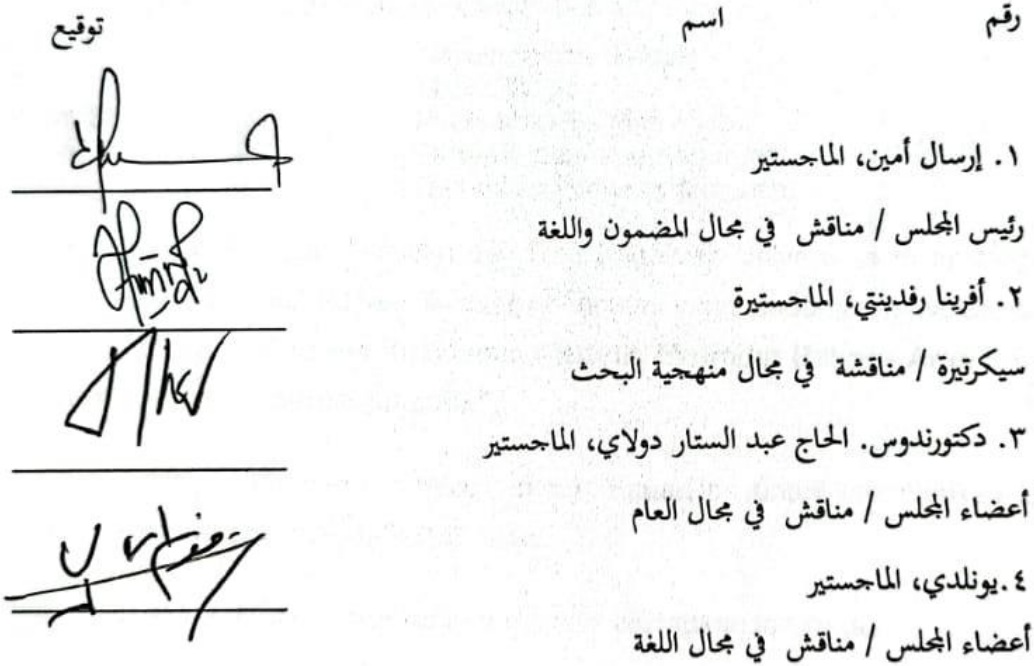 رقم اسم توقيع
١. إرسال أمين، الماجستير
رئيس المجلس / مناقش في مجال المضمون واللغة
٢. أفرينا رفدينتي، الماجستيرة
سيكرتيرة / مناقشة في مجال منهجية البحث
٣. دكتورندوس. الحاج عبد الستار دولاي، الماجستير
أعضاء المجلس / مناقش في مجال العام
٤.يونلدي، الماجستير
أعضاء المجلس / مناقش في مجال اللغة